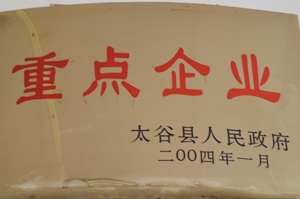 重点企业
太谷县人民政府
二00四年一月